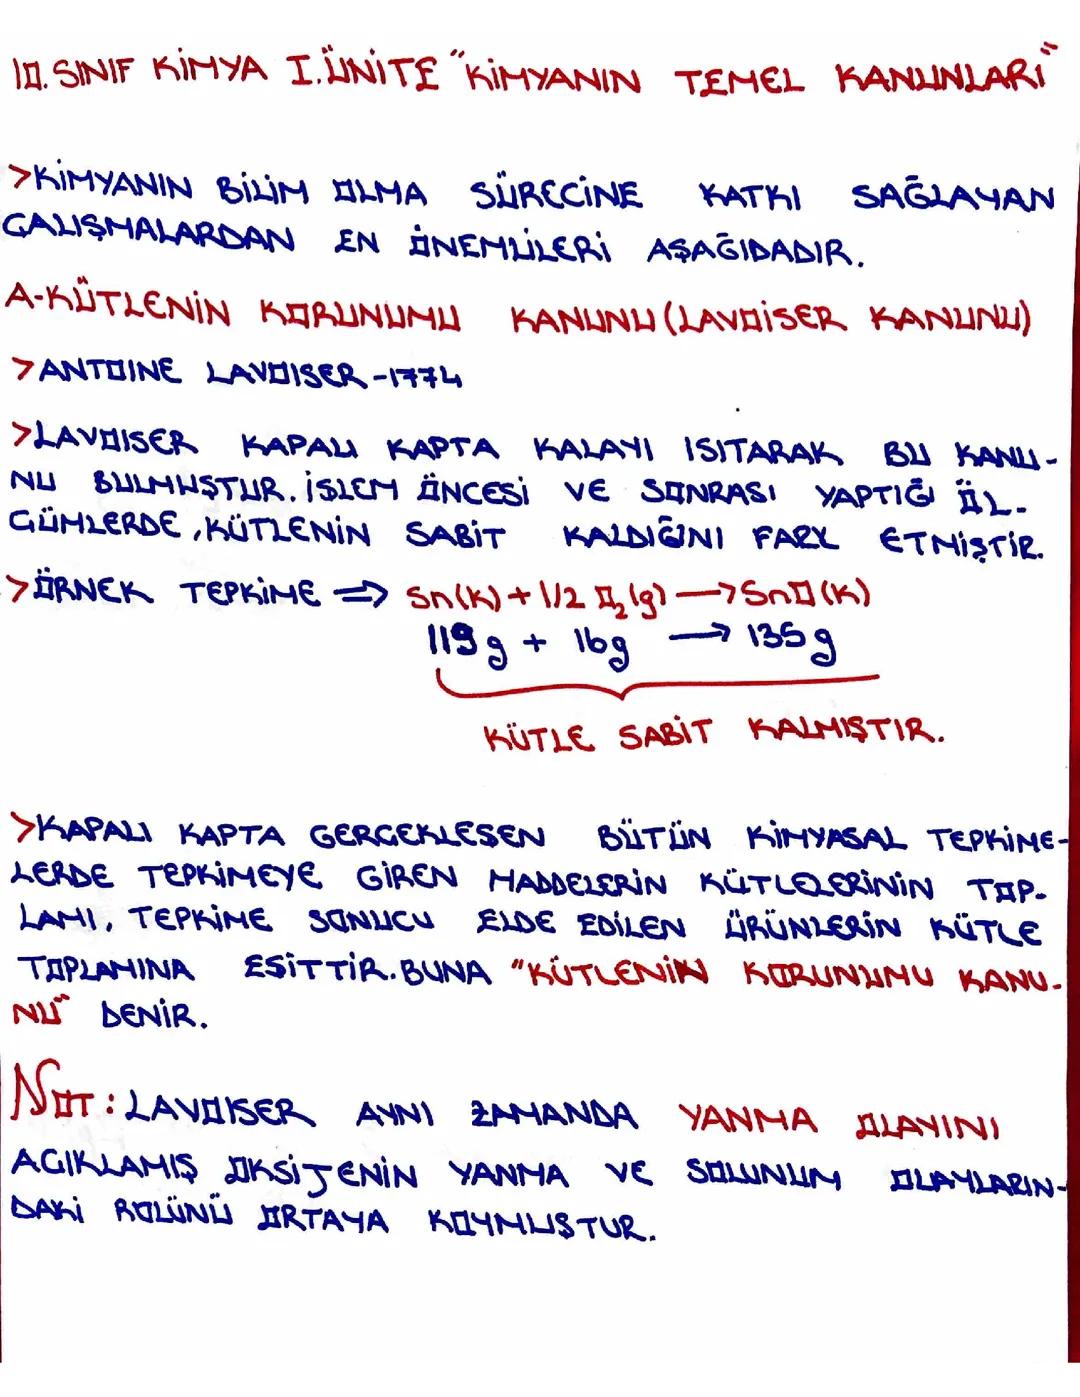 10. SINIF KİMYA I. ÜNİTE "KİMYANIN TEMEL KANUNLARI"
>KİMYANIN BİLİM OLMA SÜRECİNE KATKI SAĞLAYAN
ÇALIŞMALARDAN EN ÖNEMLİLERİ AŞAĞIDADIR.
A-KÜTLENİN KORUNUMU KANUNU (LAVOİSER KANUNU)
>ANTOINE LAVOISER-1774
>LAVOISER KAPALI KAPTA KALAYI ISITARAK BU KANU-
NU BULMUŞTUR. İŞLEM ÖNCESİ VE SONRASI YAPTIĞI ÖL-
ÇÜMLERDE, KÜTLENİN SABİT KALDIĞINI FARK ETMİŞTİR.
>ÖRNEK TEPKİME ⇒ Sn(K) + 1/2 O₂(g) → SnO(K)
119g + 16g → 135g
KÜTLE SABİT KALMIŞTIR.
>KAPALI KAPTA GERÇEKLEŞEN BÜTÜN KİMYASAL TEPKİME-
LERDE TEPKİMEYE GİREN MADDELERİN KÜTLELERİNİN TOP-
LAMI, TEPKİME SONUCU ELDE EDİLEN ÜRÜNLERİN KÜTLE
TOPLAMINA EŞİTTİR. BUNA "KÜTLENİN KORUNUMU KANU-
NU" DENİR.
NOT: LAVOISER AYNI ZAMANDA YANMA OLAYINI
AÇIKLAMIŞ OKSİJENİN YANMA VE SOLUNUM OLAYLARIN-
DAKİ ROLÜNÜ ORTAYA KOYMUŞTUR.